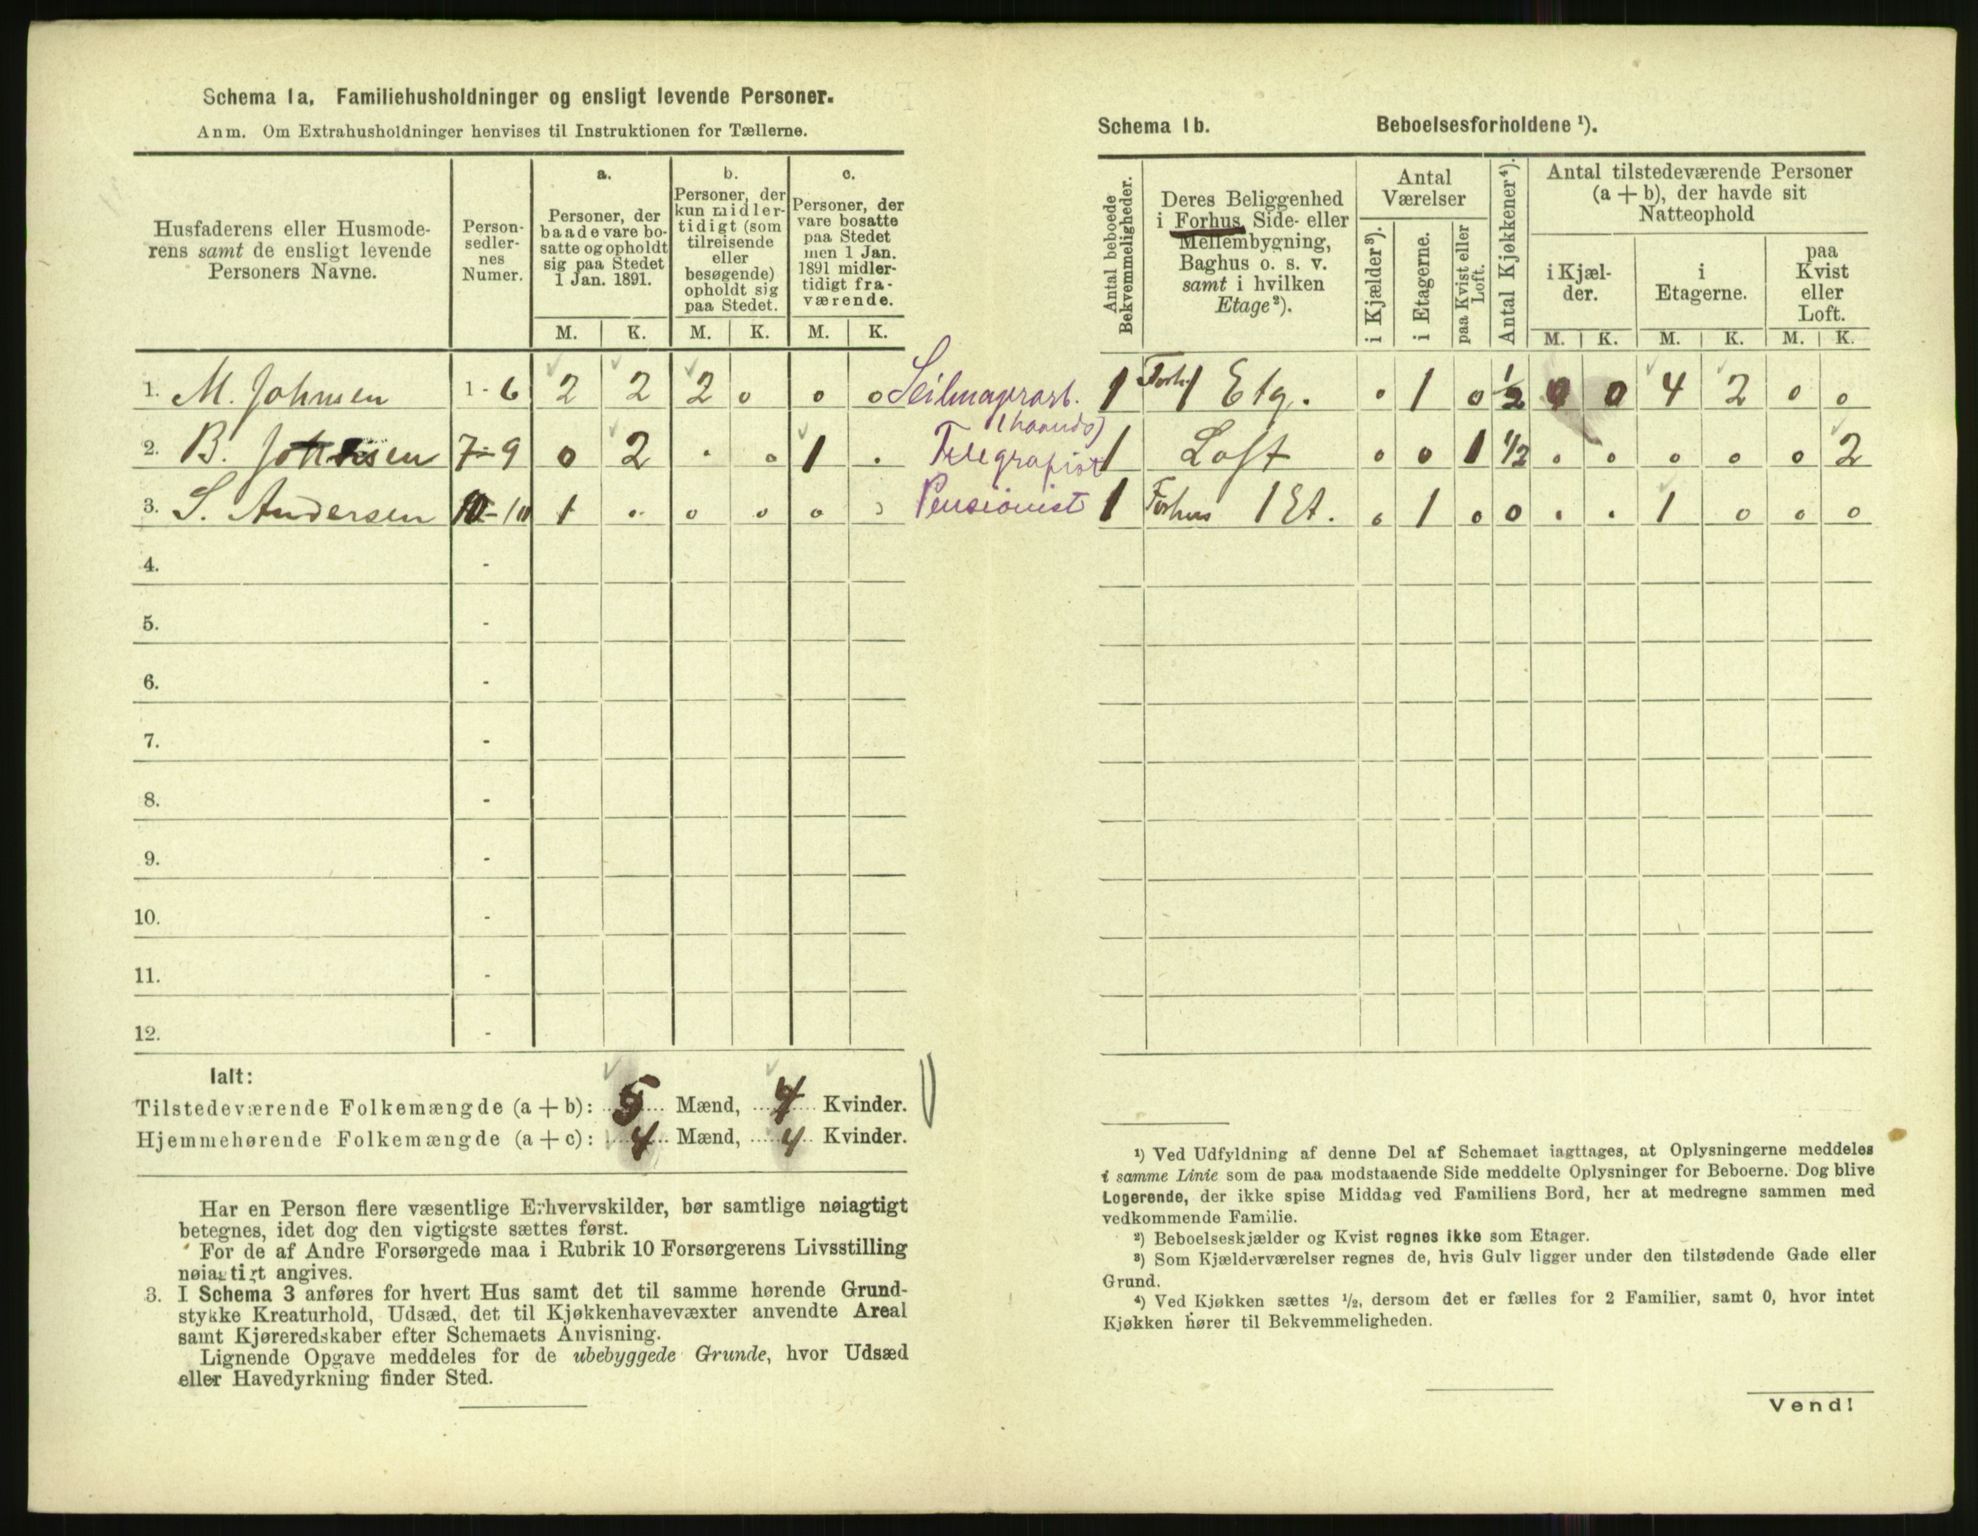 Schema 1a. Familiehusholdninger og ensligt levende Personer.
Anm. Om Extrahusholdninger henvises til Instruktionen for Tællerne.
Husfaderens eller Husmoderens samt de ensligt levende Personers Navne.
Person-sedlernes Numer.
a. Personer, der baade vare bosatte og opholdt sig paa Stedet 1 Jan. 1891.
b. Personer, der kun midlertidigt (som tilreisende eller besøgende) opholdt sig paa Stedet.
c. Personer, der vare bosatte paa Stedet men 1 Jan. 1891 midlertidigt fraværende.
M. K. M. K. M. K.
1. M. Johnsen 1-6 2 2 2 0 0 0
2. B. Johnsen 7-9 0 2 . 0 1 .
3. S. Andersen 10-10 1 . 0 0 0
4. -
5. -
6. -
7. -
8. -
9. -
10. -
11. -
12. -
Ialt:
Tilstedeværende Folkemængde (a + b): 5 Mænd, 4 Kvinder.
Hjemmehørende Folkemængde (a + c): 4 Mænd, 4 Kvinder.
Har en Person flere væsentlige Erhvervskilder, bør samtlige nøiagtigt
betegnes, idet dog den vigtigste sættes først.
For de af Andre Forsørgede maa i Rubrik 10 Forsørgerens Livsstilling
nøiagtigt angives.
3. I Schema 3 anføres for hvert Hus samt det til samme hørende Grund-
stykke Kreaturhold, Udsæd, det til Kjøkkenhavevæxter anvendte Areal
samt Kjøreredskaber efter Schemaets Anvisning.
Lignende Opgave meddeles for de ubebyggede Grunde, hvor Udsæd
eller Havedyrkning finder Sted.
Telegrafist
Pensionist
Schema 1b. Beboelsesforholdene ¹).
Antal beboede Bekvemmeligheder.
Deres Beliggenhed i Forhus, Side- eller Mellembygning, Baghus o. s. v. samt i hvilken Etage²).
Antal Værelser
i Kjælder³).
i Etagerne.
paa Kvist eller Loft.
Antal Kjøkkener⁴).
Antal tilstedeværende Personer (a + b), der havde sit Natteophold
i Kjælder.
i Etagerne.
paa Kvist eller Loft.
M. K. M. K. M. K.
1 Forh. 1 Etg. 0 1 0 1/2 0 0 4 2 0 0
1 Loft 0 0 1 1/2 . . 0 0 0 2
1 Forhus 1 Et. 0 1 0 0 . . 1 0 0 0
¹) Ved Udfyldning af denne Del af Schemaet iagttages, at Oplysningerne meddeles
i samme Linie som de paa modstaaende Side meddelte Oplysninger for Beboerne. Dog blive
Logerende, der ikke spise Middag ved Familiens Bord, her at medregne sammen med
vedkommende Familie.
²) Beboelseskjælder og Kvist regnes ikke som Etager.
³) Som Kjælderværelser regnes de, hvis Gulv ligger under den tilstødende Gade eller
Grund.
⁴) Ved Kjøkken sættes ½, dersom det er fælles for 2 Familier, samt 0, hvor intet
Kjøkken hører til Bekvemmeligheden.
Vend!